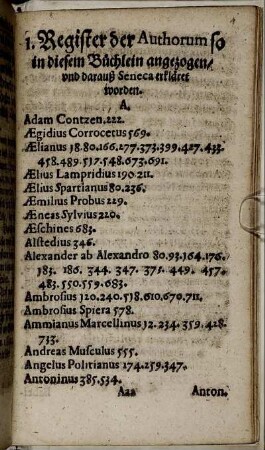 1. Register der Authorum so
in diesem Büchlein angezogen/
vnd darauß Seneca erkläret
worden.
A.
Adam Contzen. 222.
Ægidius Corrocetus 569.
Ælianus 18.80.166.277.373.399.427.433.
458.489.517.548.673.691.
Ælius Lampridius 190.211.
Ælius Spartianus 80.236.
Æmilius Probus 229.
Æneas Sylvius 220.
Æschines 683.
Alstedius 346.
Alexander ab Alexandro 80.93.164.176.
183. 186. 344. 347. 371. 449. 457.
483.550.559.683.
Ambrosius 120.240.518.610,670.711.
Ambrosius Spiera 578.
Ammianus Marcellinus 12.234.359.428.
733.
Andreas Musculus 555.
Angelus Politianus 174.259.347.
Antoninus 385.534.
Aaa Anton.